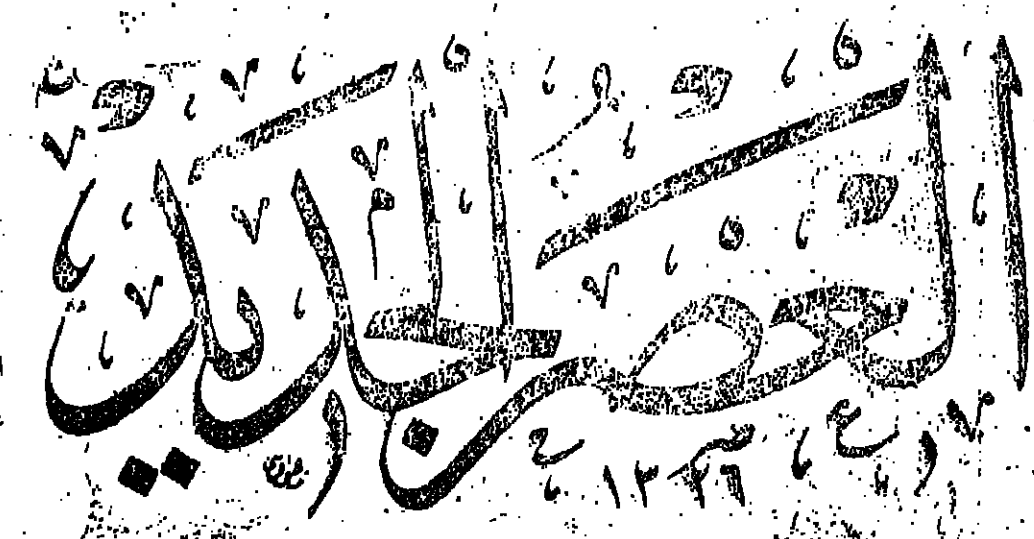 العصر الجديد
١٣٢٦